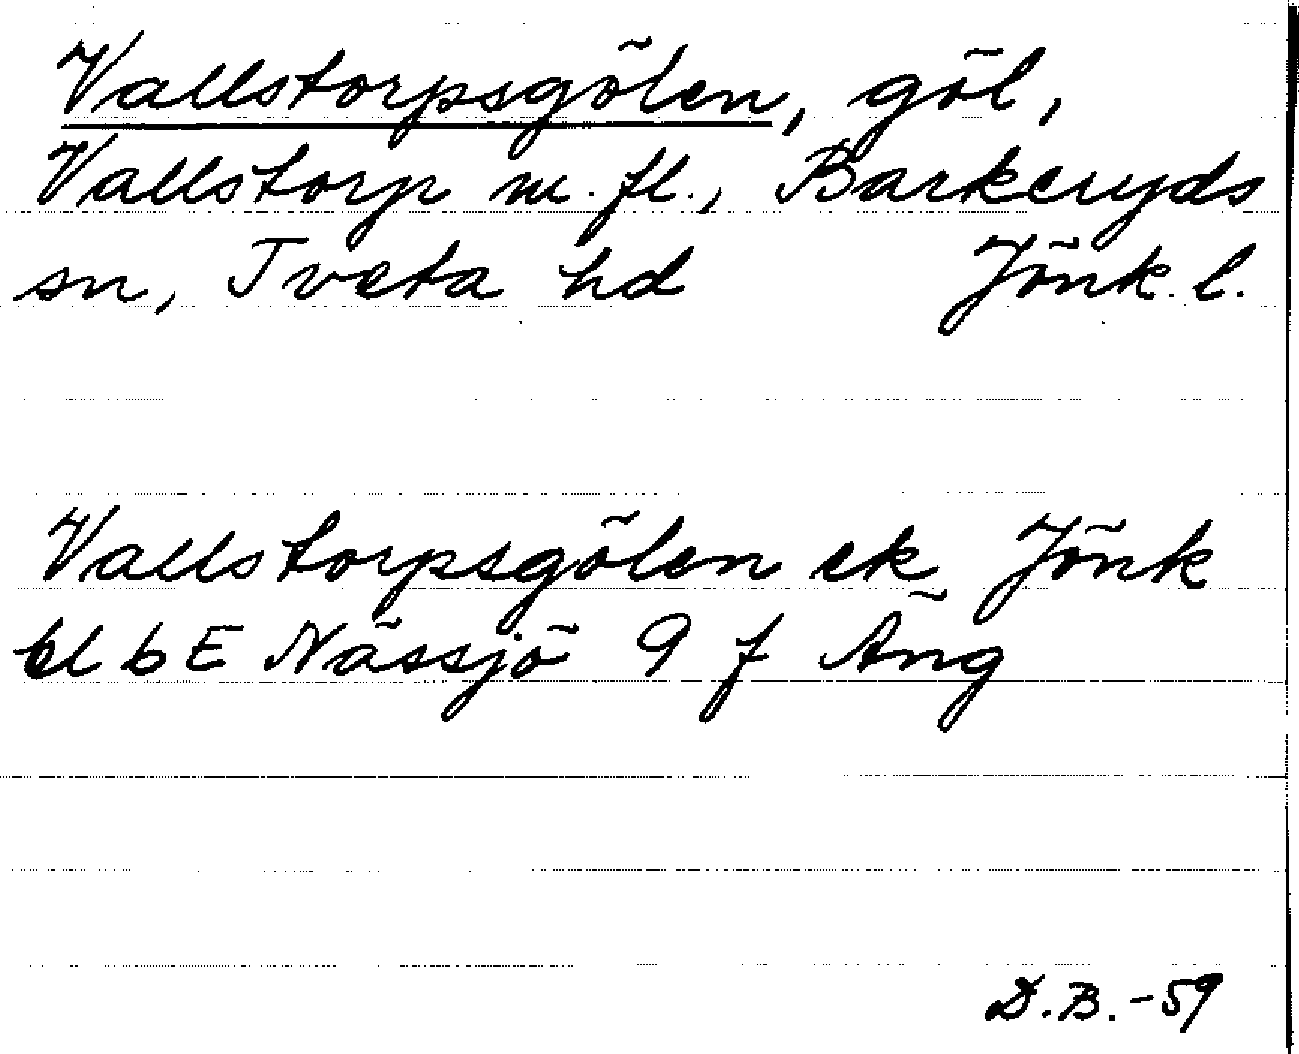 Vallstorpsgölen, göl,
Vallstorp m.fl., Barkeryds
sn, Tveta hd Jönk. l.
Vallstorpsgölen ek Jönk
bl b E Nässjö 9 f Äng
D.B.-59